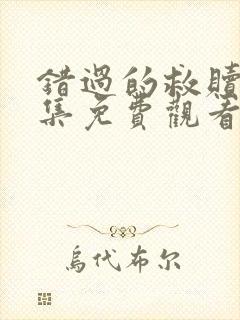 錯過的救贖
集免費觀看
烏代布尔